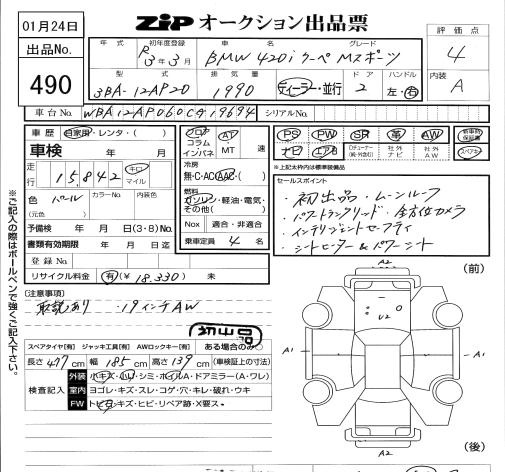 01月24日
ZIP オークション出品票
出品No.
490
評価点
4
内装
A
年式 初年度登録 車名 グレード
R3年3月 BMW 420i クーペ Mスポーツ
型式 排気量 ドア ハンドル
3BA-12AP20 1990 ディーラー・並行 2 左・右
車台No. WBA12AP060CG19694 シリアルNo.
車歴 自家用・レンタ・( )
車検 年 月
走行 15,842 キロ マイル
色 パール カラーNo. 内装色
(元色 )
予備検 年 月 日(3・8)No.
書類有効期限 年 月 日迄
登録No.
リサイクル料金 有(¥18,330) 未
フロア コラム インパネ AT MT 速
冷房
無・C・AC・AAC・( )
燃料
ガソリン・軽油・電気・その他( )
Nox 適合・非適合
乗車定員 4 名
PS PW SR 革 AW 新車時保証書
ナビ エアB Dチューナー(純・外含む) 社外ナビ 社外AW スペアキー
※上記太枠内は標準装備品
セールスポイント
・初出品・ムーンルーフ
・パワートランクリッド・全方位カメラ
・インテリジェントセーフティ
・シートヒーター&パワーシート
※ご記入の際はボールペンで強くご記入下さい。
[注意事項]
取説あり ・19インチAW
初出品
スペアタイヤ[有] ジャッキ工具[有] AWロックキー[有] ある場合のみ○
長さ 477cm 幅 185cm 高さ 139cm (車検証上の寸法)
検査記入
外装 小キズ・凹・シミ・ホイルA・ドアミラー(A・ワレ)
室内 ヨゴレ・キズ・スレ・コゲ・穴・キレ・破れ・ウキ
FW トビ石・キズ・ヒビ・リペア跡・X要ス・
(前)
A2
U2
A1
A1
A2
(後)